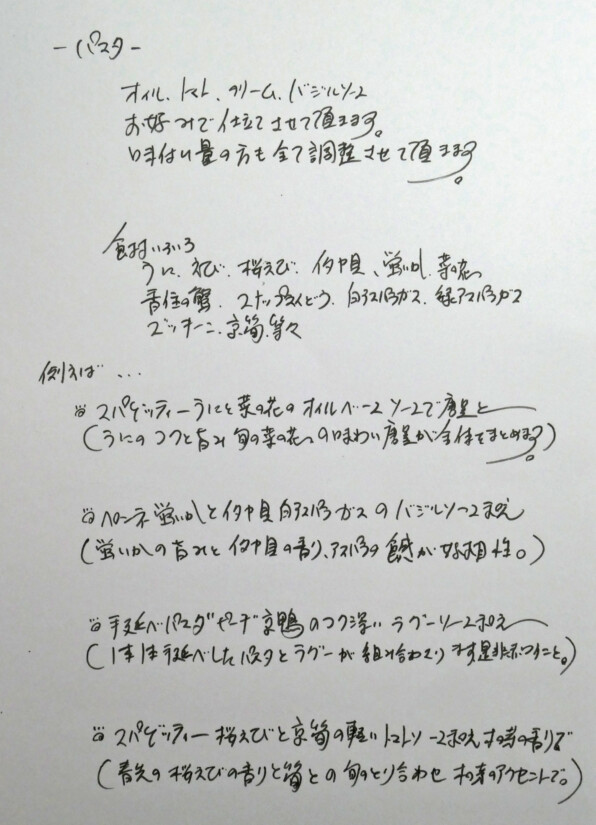 －パスタ－
オイル、トマト、クリーム、バジルソース
お好みで仕立てさせて頂きます。
味付け量の方も全て調整させて頂きます。
食材いろいろ
うに、えび、桜えび、イタヤ貝、蛍いか、菜の花
香住の蟹、スナップえんどう、白アスパラガス、緑アスパラガス
ズッキーニ、京筍、等々
例えば・・・
スパゲッティーうにと菜の花のオイルベースソースで唐墨と
(うにのコクと旨み旬の菜の花の味わい唐墨が全体をまとめます。)
ペンネ蛍いかとイタヤ貝白アスパラガスのバジルソース和え
(蛍いかの旨みとイタヤ貝の香り、アスパラの食感が好相性。)
手延べパスタ 京鴨のコク深いラグーソース和え
(1本1本手延べしたパスタとラグーが組み合わさり ます是非)
スパゲッティー桜えびと京筍の軽いトマトソース和え木の芽の香りで
(春先の桜えびの香りと筍との旬のとり合わせ 木の芽のアクセントで。)